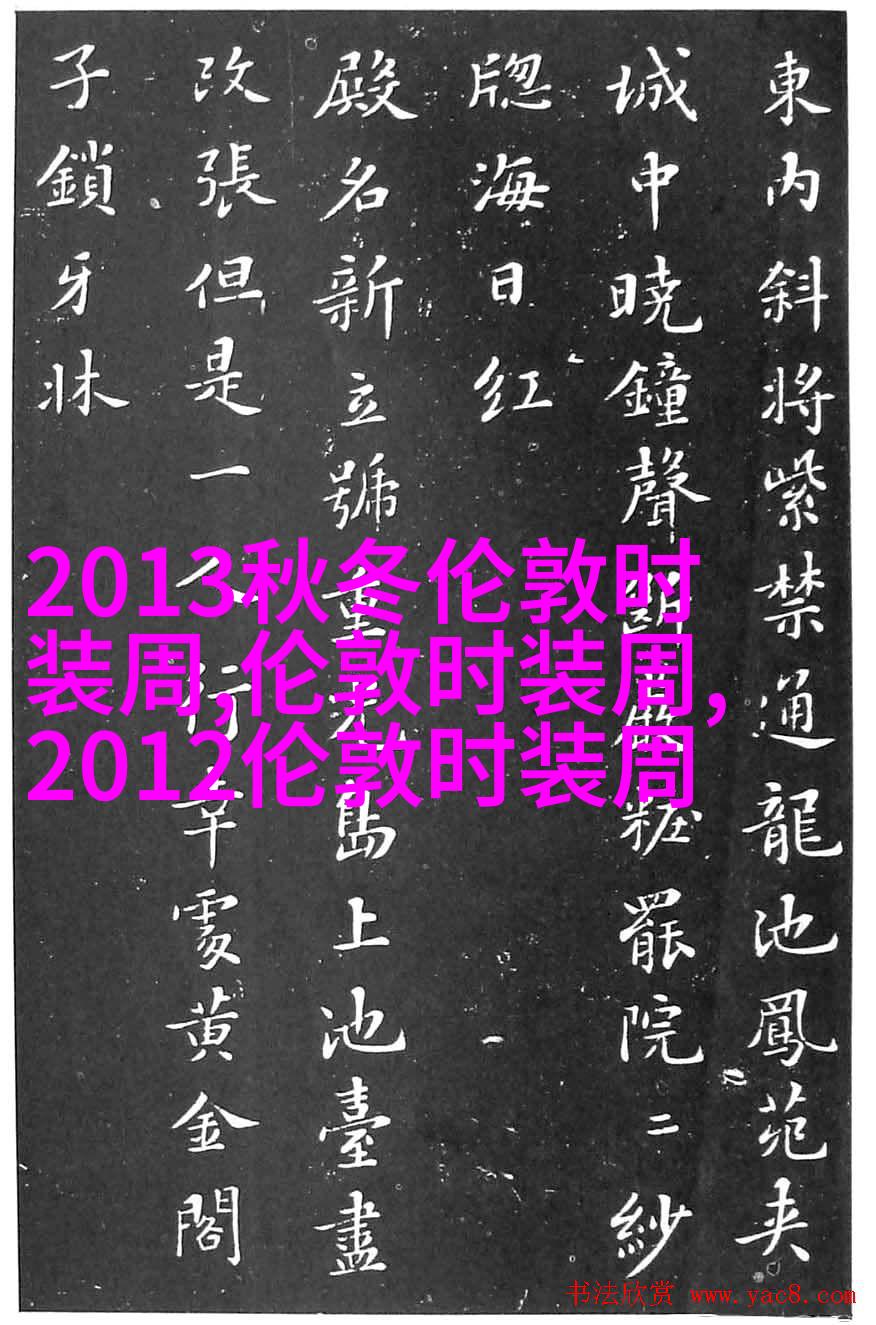 東內斜將紫禁通龍池鳳苑夹
城中曉鐘聲斷嚴粧罷院二紗
牎海日紅
殿名新立號重光島上池臺盡
改張但是一人行幸處黄金閣
子鎖牙牀
2013秋冬伦敦时
装周,伦敦时装周,
2012伦敦时装周
书法欣赏 www.yac8.com